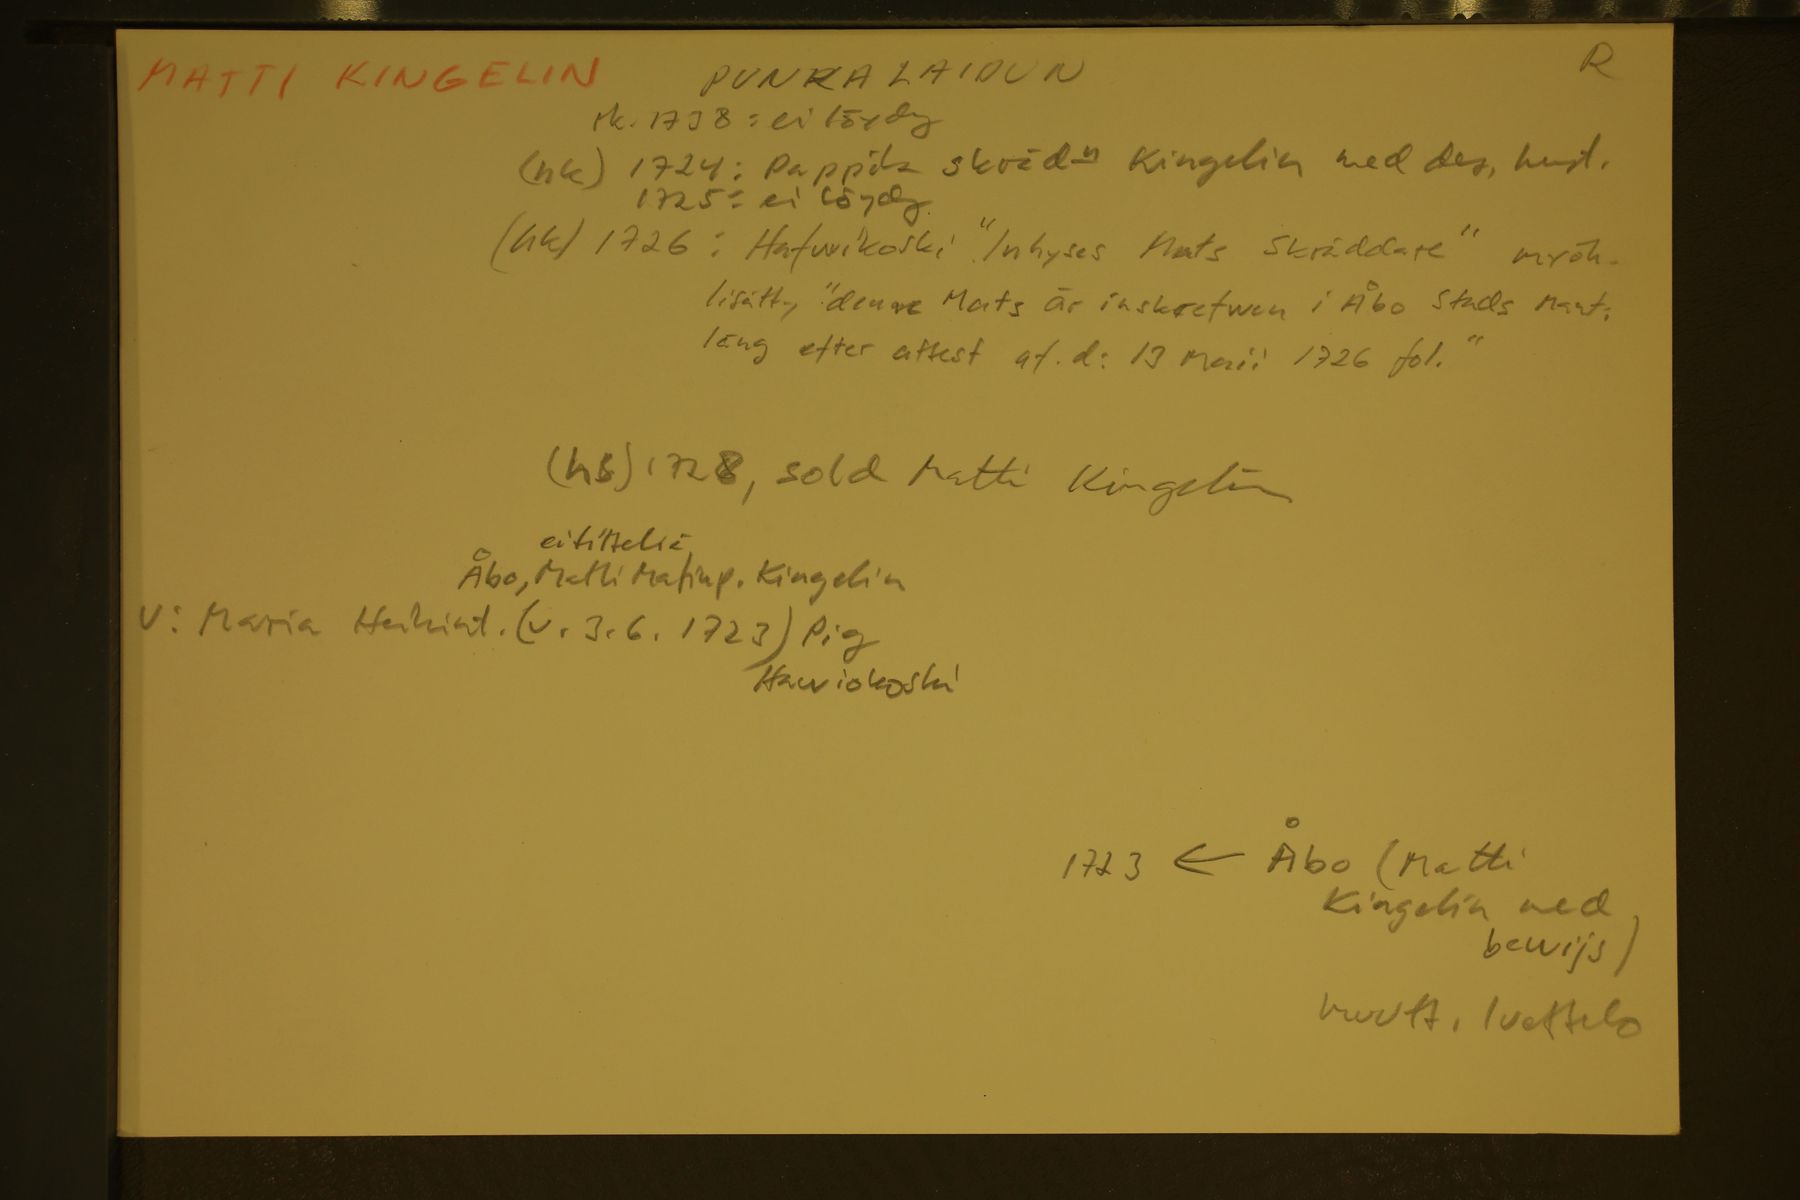 MATTI KINGELIN PUNKALAIDUN R
rk. 1738: ei löydy
(hk) 1724: Pappila skrädn Kingelin med des, hust.
1725: ei löydy
(hk) 1726: Hafwikoski "Inhyses Mats Skräddare" myöh.
lisätty "denne Mats är inskrefwen i Åbo Stads Mant.
läng efter attest af. d: 13 Marii 1726 fol."
(hk) 1728, sold Matti Kingelin
ei titteliä
Åbo, Matti Matinp. Kingelin
V: Maria Heikint. (v. 3.6. 1723) Pig
Hawiokoski
1723 ← Åbo (Matti
Kingelin med
bewijs)
muutt. luettelo